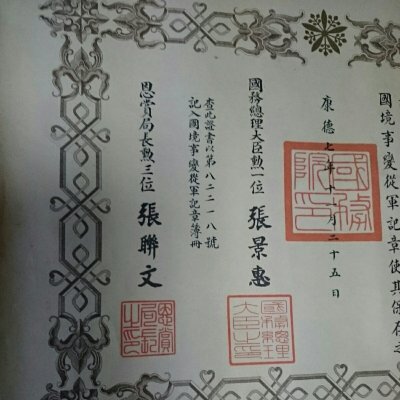 國境事變從軍記章使其保存之
康德七年十一月二十五日
國務總理大臣勳一位 張景惠
查此證書以第八二二一八號
記入國境事變從軍記章簿冊
恩賞局長勳三位 張聯文
國務院印
國務總理大臣之印
恩賞局長之印